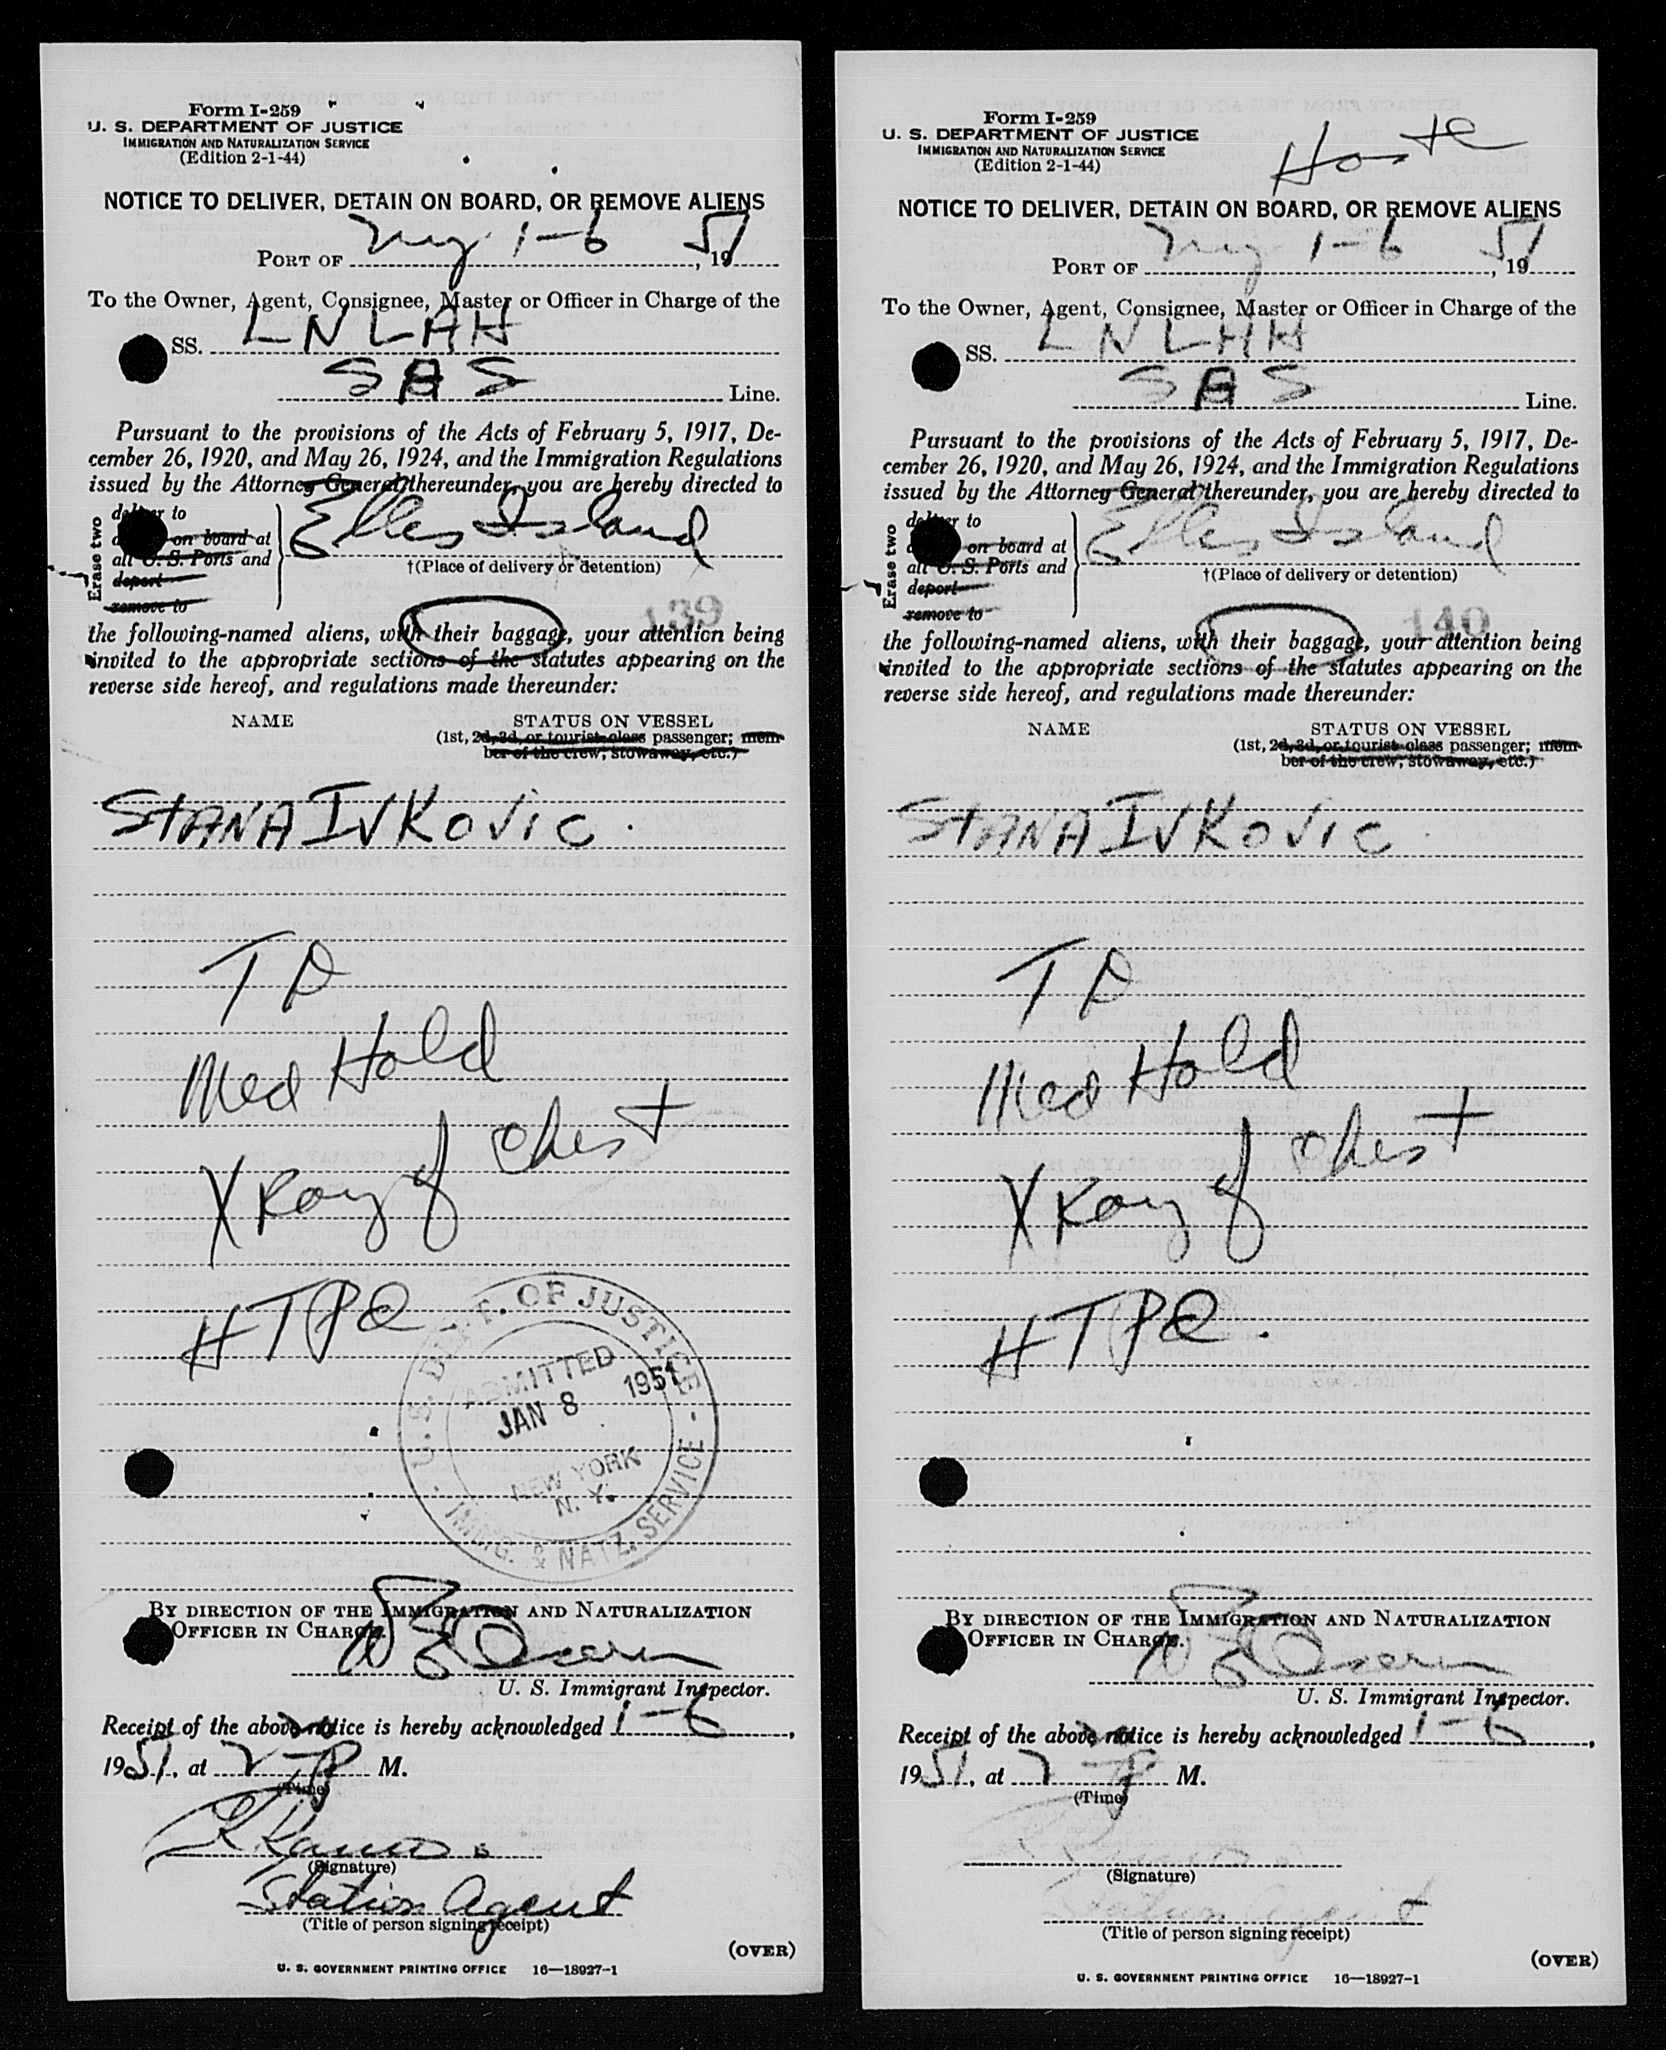 Form I-259
U. S. DEPARTMENT OF JUSTICE
IMMIGRATION AND NATURALIZATION SERVICE
(Edition 2-1-44)
NOTICE TO DELIVER, DETAIN ON BOARD, OR REMOVE ALIENS
PORT OF NY 1-6, 1951
To the Owner, Agent, Consignee, Master or Officer in Charge of the
SS. LN LAH
SAS Line.
Pursuant to the provisions of the Acts of February 5, 1917, De-
cember 26, 1920, and May 26, 1924, and the Immigration Regulations
issued by the Attorney General thereunder, you are hereby directed to
Erase two
deliver to
on board at
all U. S. Ports and
deport
remove to
Ellis Island
†(Place of delivery or detention)
139
the following-named aliens, with their baggage, your attention being
invited to the appropriate sections of the statutes appearing on the
reverse side hereof, and regulations made thereunder:
NAME STATUS ON VESSEL
(1st, 2d, 3d, or tourist class passenger; mem-
ber of the crew; stowaway, etc.)
STANA IVKOVIC.
TD
Med Hold
X Ray of Chest
HTPQ
U. S. DEPT. OF JUSTICE
ADMITTED
JAN 8 1951
NEW YORK
N. Y.
IMMIG. & NATZ. SERVICE
BY DIRECTION OF THE IMMIGRATION AND NATURALIZATION
OFFICER IN CHARGE.
U. S. Immigrant Inspector.
Receipt of the above notice is hereby acknowledged 1-6,
1951, at 7 P M.
(Time)
(Signature)
Station Agent
(Title of person signing receipt)
(OVER)
U. S. GOVERNMENT PRINTING OFFICE 16—18927-1
Form I-259
U. S. DEPARTMENT OF JUSTICE
IMMIGRATION AND NATURALIZATION SERVICE
(Edition 2-1-44)
NOTICE TO DELIVER, DETAIN ON BOARD, OR REMOVE ALIENS
PORT OF NY 1-6, 1951
To the Owner, Agent, Consignee, Master or Officer in Charge of the
SS. LN LAH
SAS Line.
Pursuant to the provisions of the Acts of February 5, 1917, De-
cember 26, 1920, and May 26, 1924, and the Immigration Regulations
issued by the Attorney General thereunder, you are hereby directed to
Erase two
deliver to
on board at
all U. S. Ports and
deport
remove to
Ellis Island
†(Place of delivery or detention)
140
the following-named aliens, with their baggage, your attention being
invited to the appropriate sections of the statutes appearing on the
reverse side hereof, and regulations made thereunder:
NAME STATUS ON VESSEL
(1st, 2d, 3d, or tourist class passenger; mem-
ber of the crew; stowaway, etc.)
STANA IVKOVIC.
TD
Med Hold
X Ray of Chest
HTPQ.
BY DIRECTION OF THE IMMIGRATION AND NATURALIZATION
OFFICER IN CHARGE.
U. S. Immigrant Inspector.
Receipt of the above notice is hereby acknowledged 1-6,
1951, at 7 P M.
(Time)
(Signature)
Station Agent
(Title of person signing receipt)
(OVER)
U. S. GOVERNMENT PRINTING OFFICE 16—18927-1